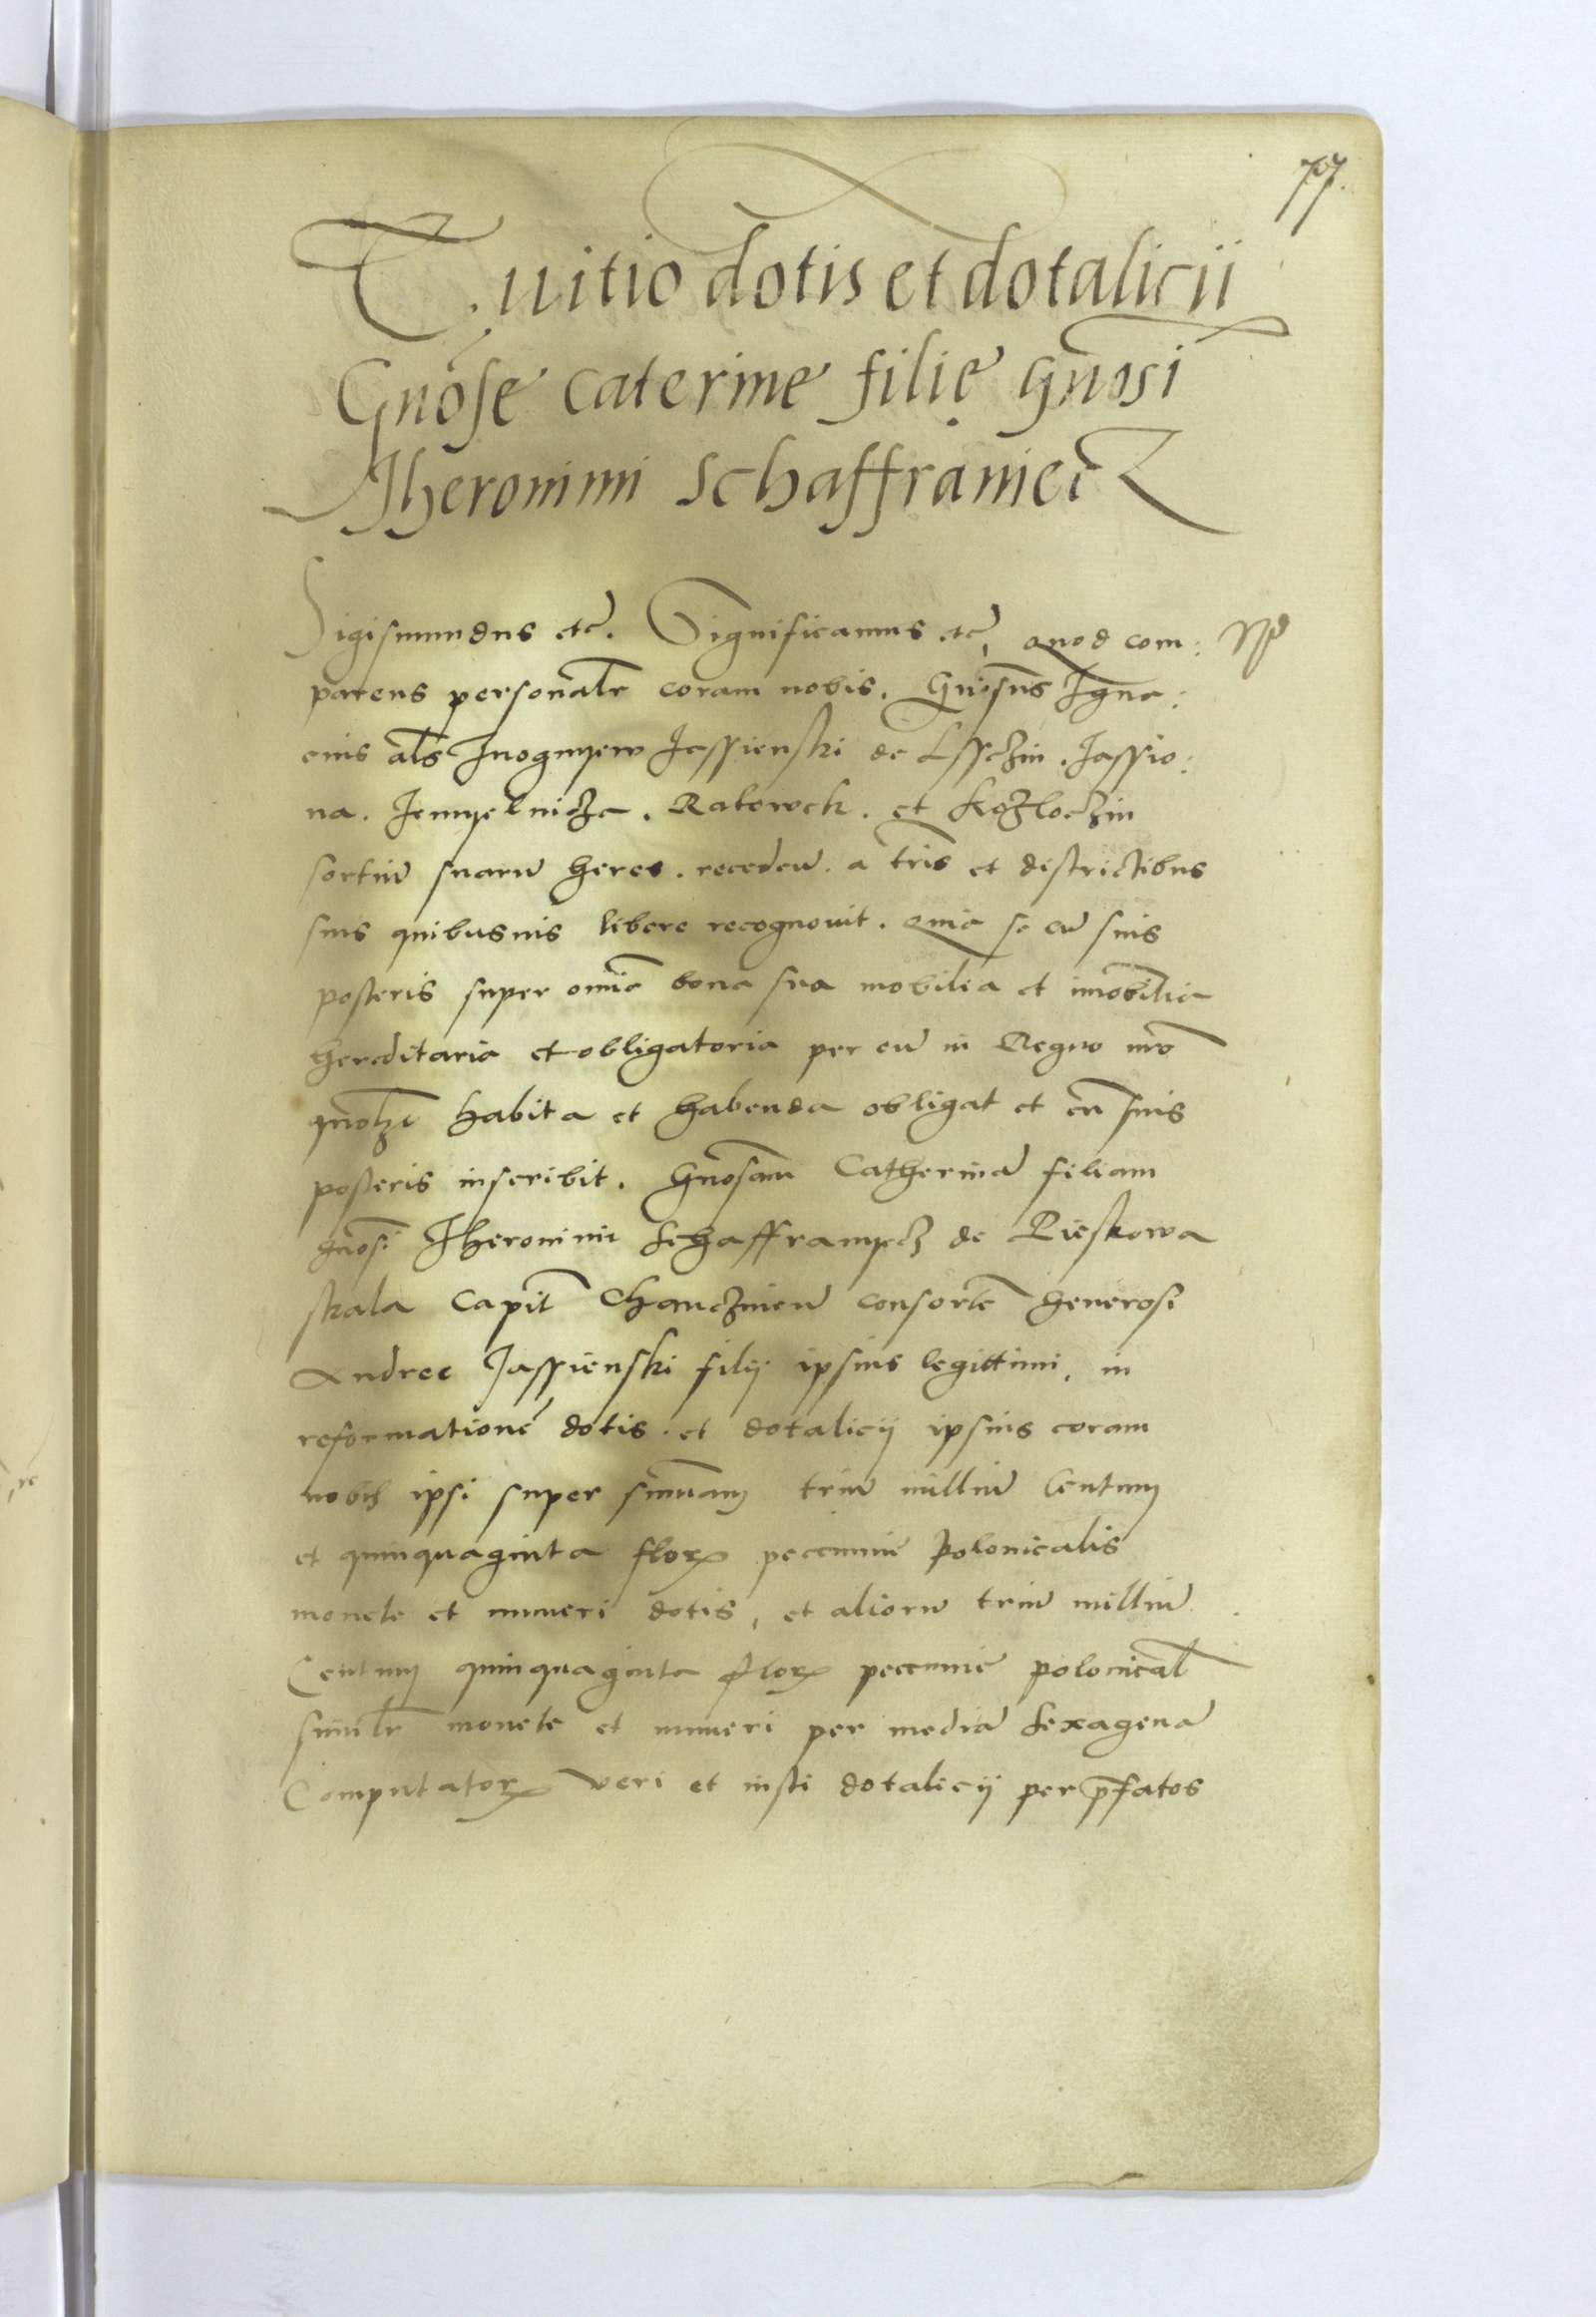 77.
Tuitio dotis et dotalicii
Gnose Caterine filię gnosi
Jheronimi Schaffraniecz
Sigismundus etc. Significamus etc, quod com:
parens personalr coram nobis. Gnosus Igna:
cius als Inognyew Jassienski de Lssczin. Jassio:
na. Jemyelnicza. Rakowek. et
sortiu suaru heres. receden. a tris et districtibus
suis quibusuis libere recognouit. quia se cu suis
posteris super omia bona sua mobilia et imobilia
hereditaria et obligatoria per eu in Regno nro
quolzt habita et habenda obligat et cu suis
posteris inscribit. Gnosam Catherina filiam
gnosi Jheronimi Schaffranyecz de Pieskowa
skala Capit Chanczinen consorte generosi
Andree Jassienski filij ipsius legittimi, in
reformatione dotis. et dotalicij ipsius coram
nobis ipsi super summam triu milliu Centum
et quinquaginta flor peccunie Polonicalis
monete et numeri dotis, et alioru triu milliu
Centum quinquaginta flor peccunie polonical
similr monete et numeri per media sexagena
Computator veri et iusti dotalicij per pfatos